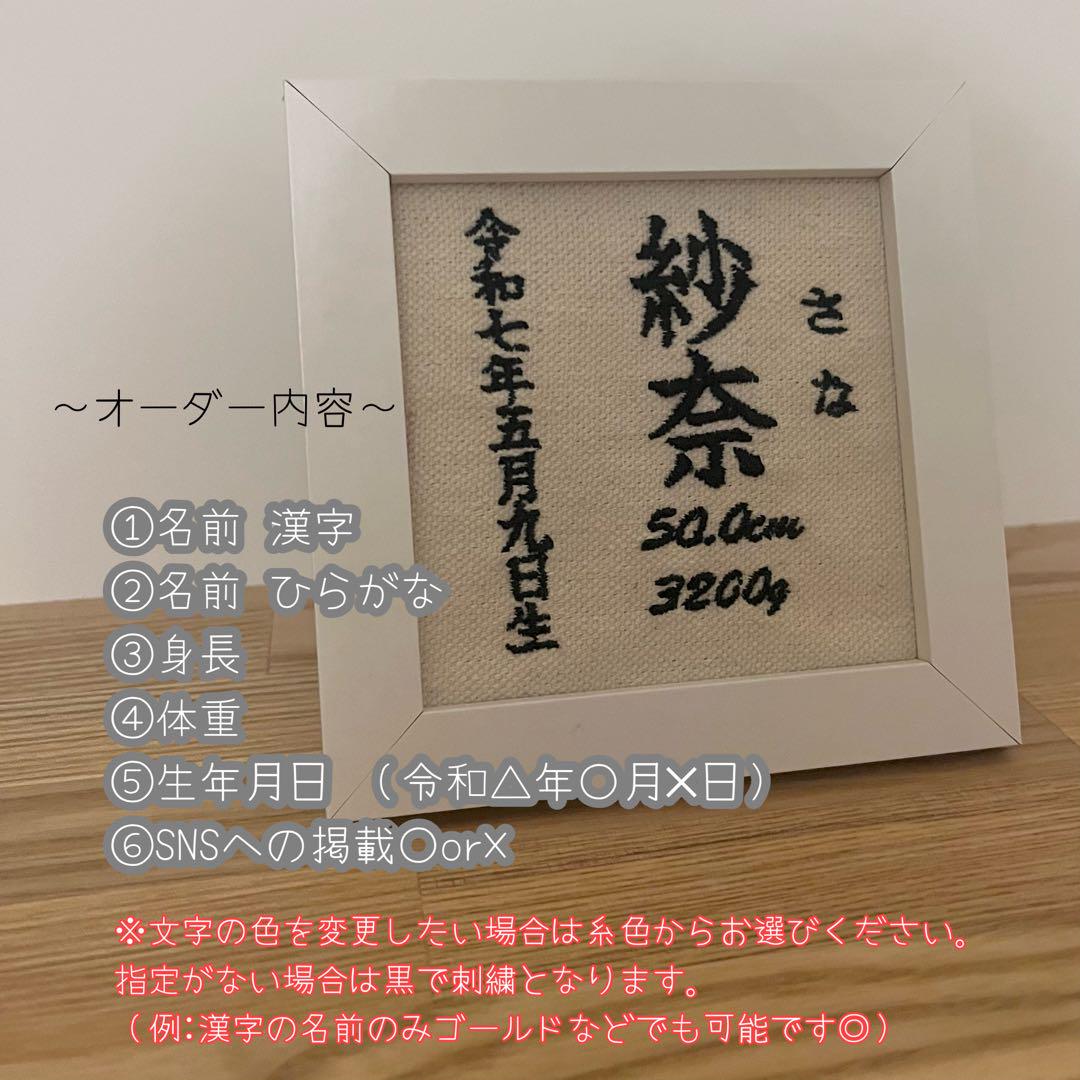 さな
紗奈
50.0cm
3200g
令和七年五月九日生
～オーダー内容～
①名前 漢字
②名前 ひらがな
③身長
④体重
⑤生年月日 （令和△年〇月✕日）
⑥SNSへの掲載〇or✕
※文字の色を変更したい場合は糸色からお選びください。
指定がない場合は黒で刺繍となります。
（例:漢字の名前のみゴールドなどでも可能です◎）